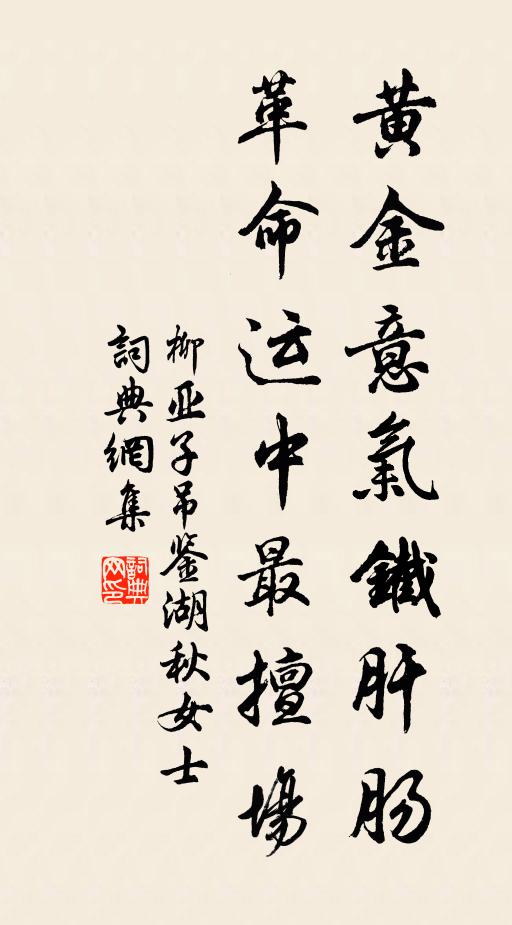 黄金意氣鐵肝肠
革命运中最擅場
柳亚子吊鉴湖秋女士
詞典網集
詞典
网印